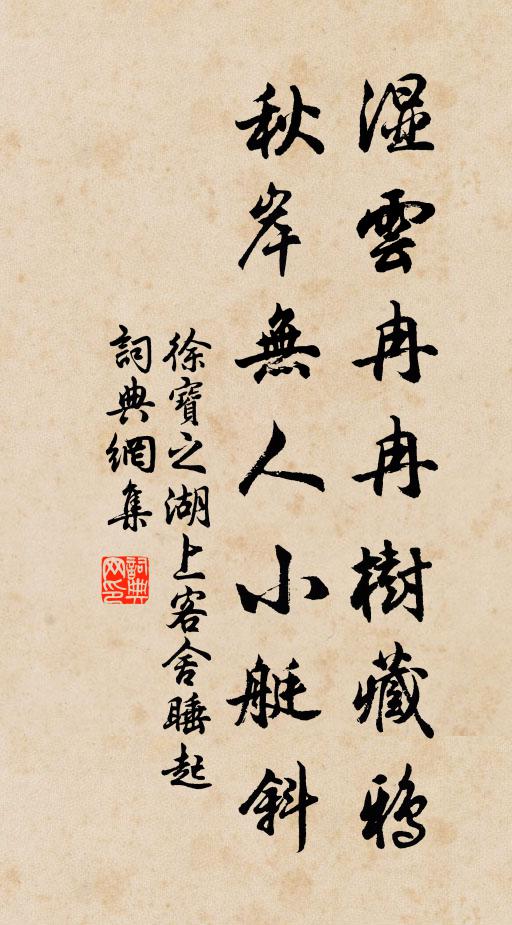 湿雲冉冉樹藏鴉
秋岸無人小艇斜
徐寶之湖上客舍睡起
詞典網集
詞典网印